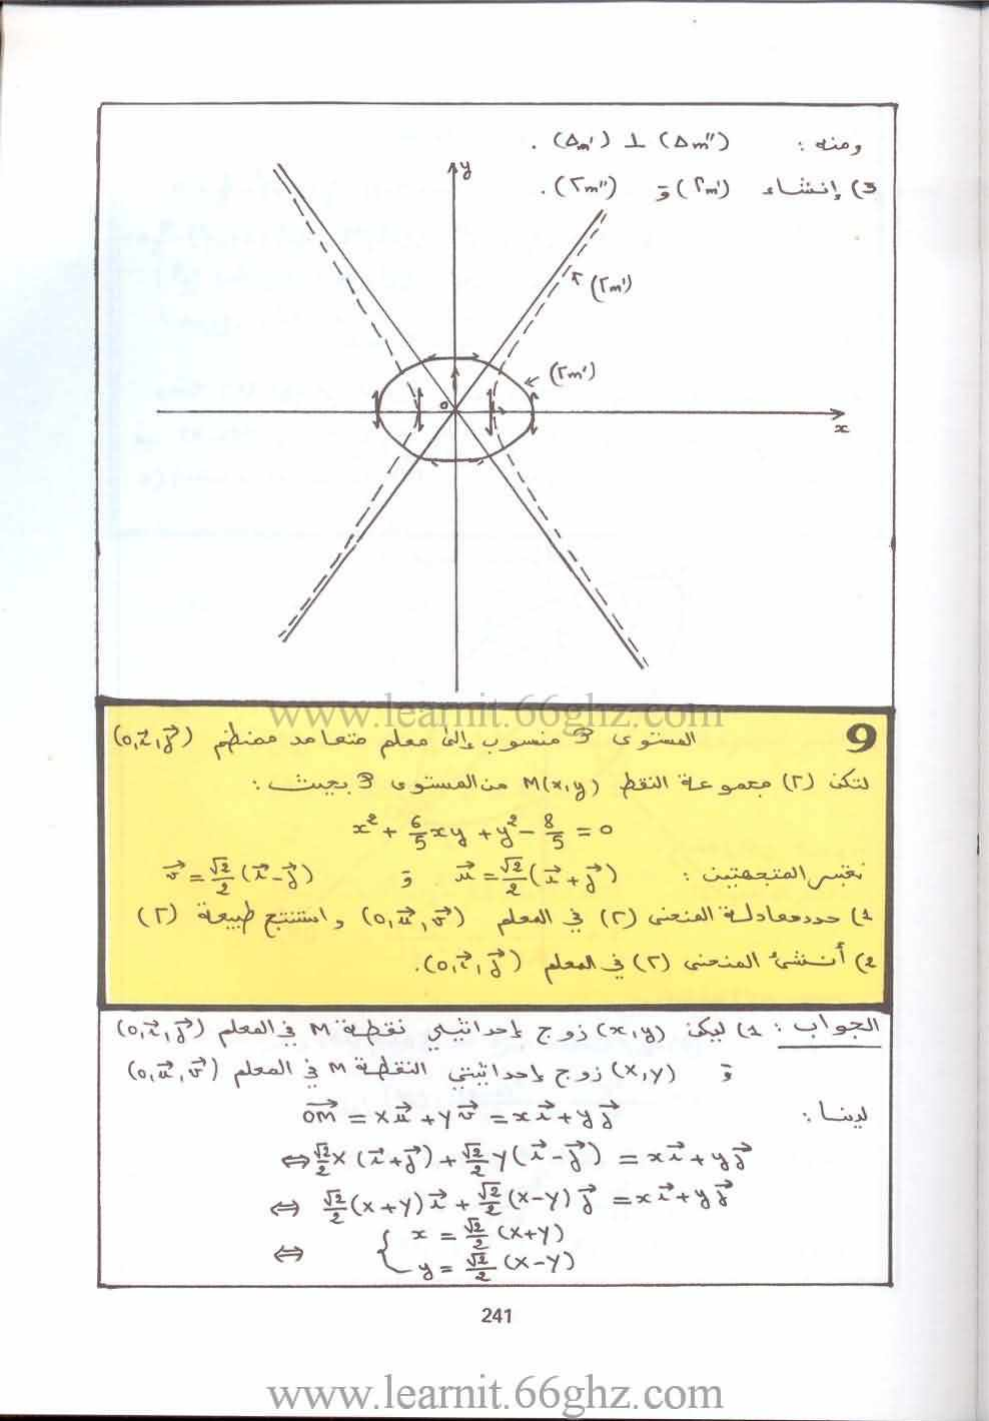 ومنه : (Δm') ⊥ (Δm'') .
3) إنشاء (Γm') وَ (Γm'') .
y
(Γm')
(Γm')
o
x
www.learnit.66ghz.com
9
المستوى P منسوب إلى معلم متعامد ممنظم (o,i⃗,j⃗)
لتكن (Γ) مجموعة النقط M(x,y) من المستوى P بحيث :
x² + 6/5 xy + y² - 8/5 = 0
نعتبر المتجهتين : u⃗ = √2/2 (i⃗ + j⃗) وَ v⃗ = √2/2 (i⃗ - j⃗)
1) حدد معادلة المنحنى (Γ) في المعلم (o,u⃗,v⃗) واستنتج طبيعة (Γ)
2) أنشئ المنحنى (Γ) في المعلم (o,i⃗,j⃗).
الجواب : 1) ليكن (x,y) زوج إحداثيتي نقطة M في المعلم (o,i⃗,j⃗)
وَ (X,Y) زوج إحداثيتي النقطة M في المعلم (o,u⃗,v⃗)
لدينا : OM⃗ = Xu⃗ + Yv⃗ = xi⃗ + yj⃗
⇔ √2/2 X (i⃗+j⃗) + √2/2 Y(i⃗-j⃗) = xi⃗ + yj⃗
⇔ √2/2 (X+Y)i⃗ + √2/2 (X-Y)j⃗ = xi⃗ + yj⃗
⇔ { x = √2/2 (X+Y)
y = √2/2 (X-Y)
241
www.learnit.66ghz.com